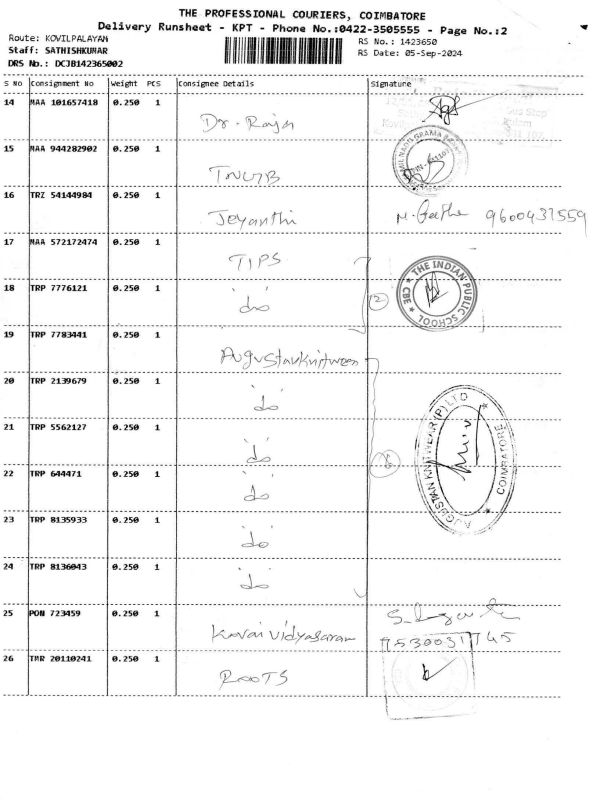 THE PROFESSIONAL COURIERS, COIMBATORE
Delivery Runsheet - KPT - Phone No.:0422-3505555 - Page No.:2
Route: KOVILPALAYAM
RS No.: 1423650
Staff: SATHISHKUMAR
RS Date: 05-Sep-2024
DRS No.: DCJB142365002
S No Consignment No Weight PCS Consignee Details Signature
14 MAA 101657418 0.250 1
Dr. Raja
15 MAA 944282902 0.250 1
16 TRZ 54144984 0.250 1
Jeyanthi 9600431559
17 MAA 572172474 0.250 1
TIPS
THE INDIAN PUBLIC SCHOOL CBE
18 TRP 7776121 0.250 1
do
12
19 TRP 7783441 0.250 1
20 TRP 2139679 0.250 1
do
AUGUSTAN KNITWEAR (P) LTD COIMBATORE
21 TRP 5562127 0.250 1
do
6
22 TRP 644471 0.250 1
do
23 TRP 8135933 0.250 1
do
24 TRP 8136043 0.250 1
do
25 PON 723459 0.250 1
Kovai Vidyasaram
26 TMR 20110241 0.250 1
ROOTS